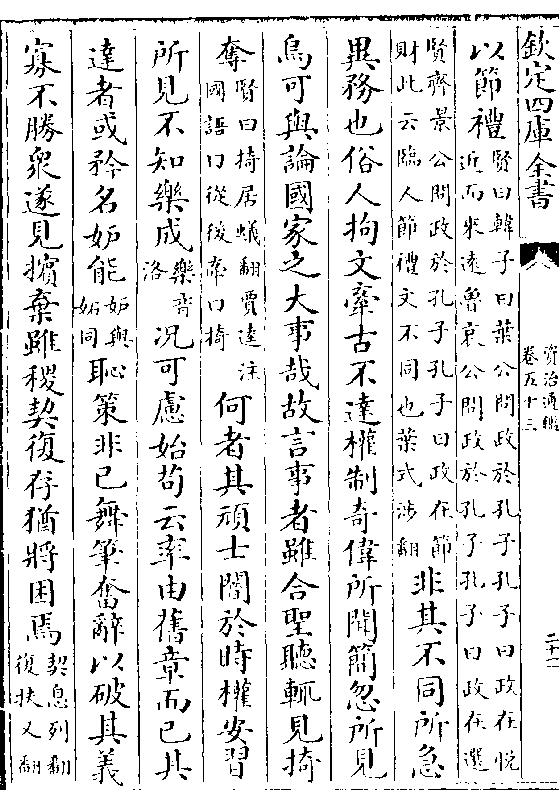 欽定四庫全書
資治通鑑
卷五十三
二十一
以節禮賢曰韓子曰葉公問政於孔子孔子曰政在悅
近而來遠魯哀公問政於孔子孔子曰政在選
賢齊景公問政於孔子孔子曰政在節
財此云臨人節禮文不同也葉式涉翻非其不同所急
異務也俗人拘文牽古不達權制奇偉所聞簡忽所見
烏可與論國家之大事哉故言事者雖合聖聽輒見掎
奪賢曰掎居蟻翻賈逵注
國語曰從後牽曰掎何者其頑士闇於時權安習
所見不知樂成樂音
洛况可慮始苟云率由舊章而已其
達者或矜名妬能妬與
妬同恥策非已舞筆奮辭以破其義
寡不勝衆遂見擯棄雖稷契復存猶將困焉契息列翻
復扶又翻